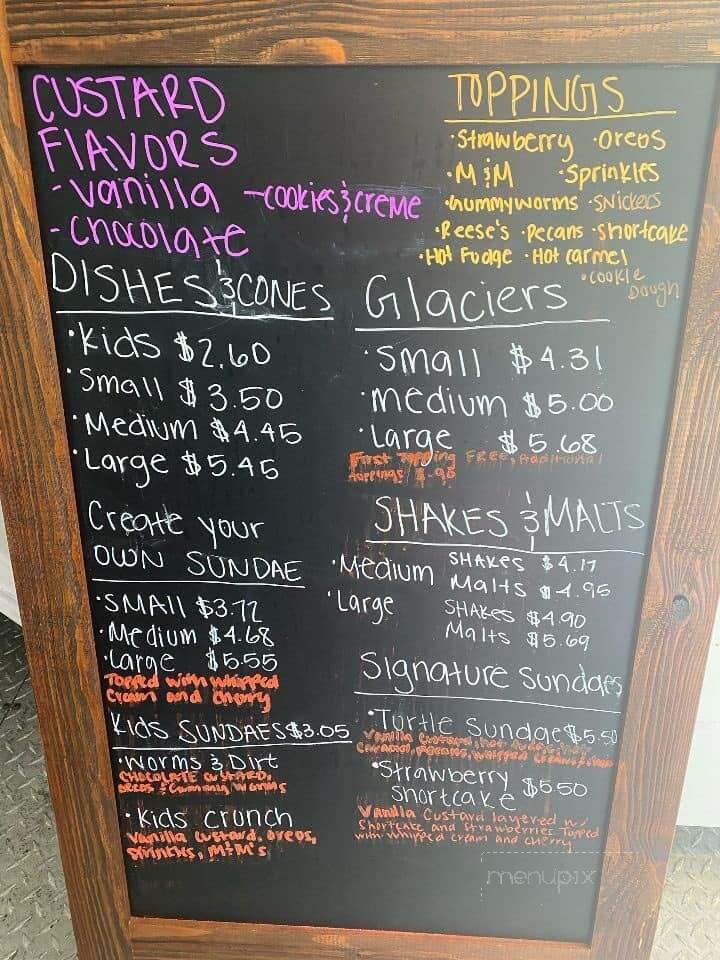 CUSTARD
FLAVORS
- vanilla
- cookies & creme
- chocolate
TOPPINGS
· Strawberry · Oreos
· M & M · Sprinkles
· Gummyworms · Snickers
· Reese's · Pecans · Shortcake
· Hot Fudge · Hot carmel
· cookie Dough
DISHES & CONES
· Kids $2.60
· Small $3.50
· Medium $4.45
· Large $5.45
Glaciers
· Small $4.31
· medium $5.00
· Large $5.68
First Topping FREE, Additional
toppings $.95
Create your
OWN SUNDAE
· SMAll $3.72
· Medium $4.68
· Large $5.55
Topped with whipped
Cream and Cherry
SHAKES & MALTS
· Medium SHAKes $4.17
Malts $4.95
· Large SHAKes $4.90
Malts $5.69
Kids SUNDAES $3.05
· Worms & Dirt
CHOCOLATE CUSTARD,
OREOS & Gummy Worms
· Kids crunch
Vanilla Custard, Oreos,
Sprinkles, M&M's
Signature Sundaes
· Turtle Sundae $5.50
Vanilla Custard, hot fudge, hot
Caramel, Pecans, whipped cream
· Strawberry
Shortcake $5.50
Vanilla Custard layered w/
Shortcake and Strawberries Topped
with whipped cream and cherry
menupix